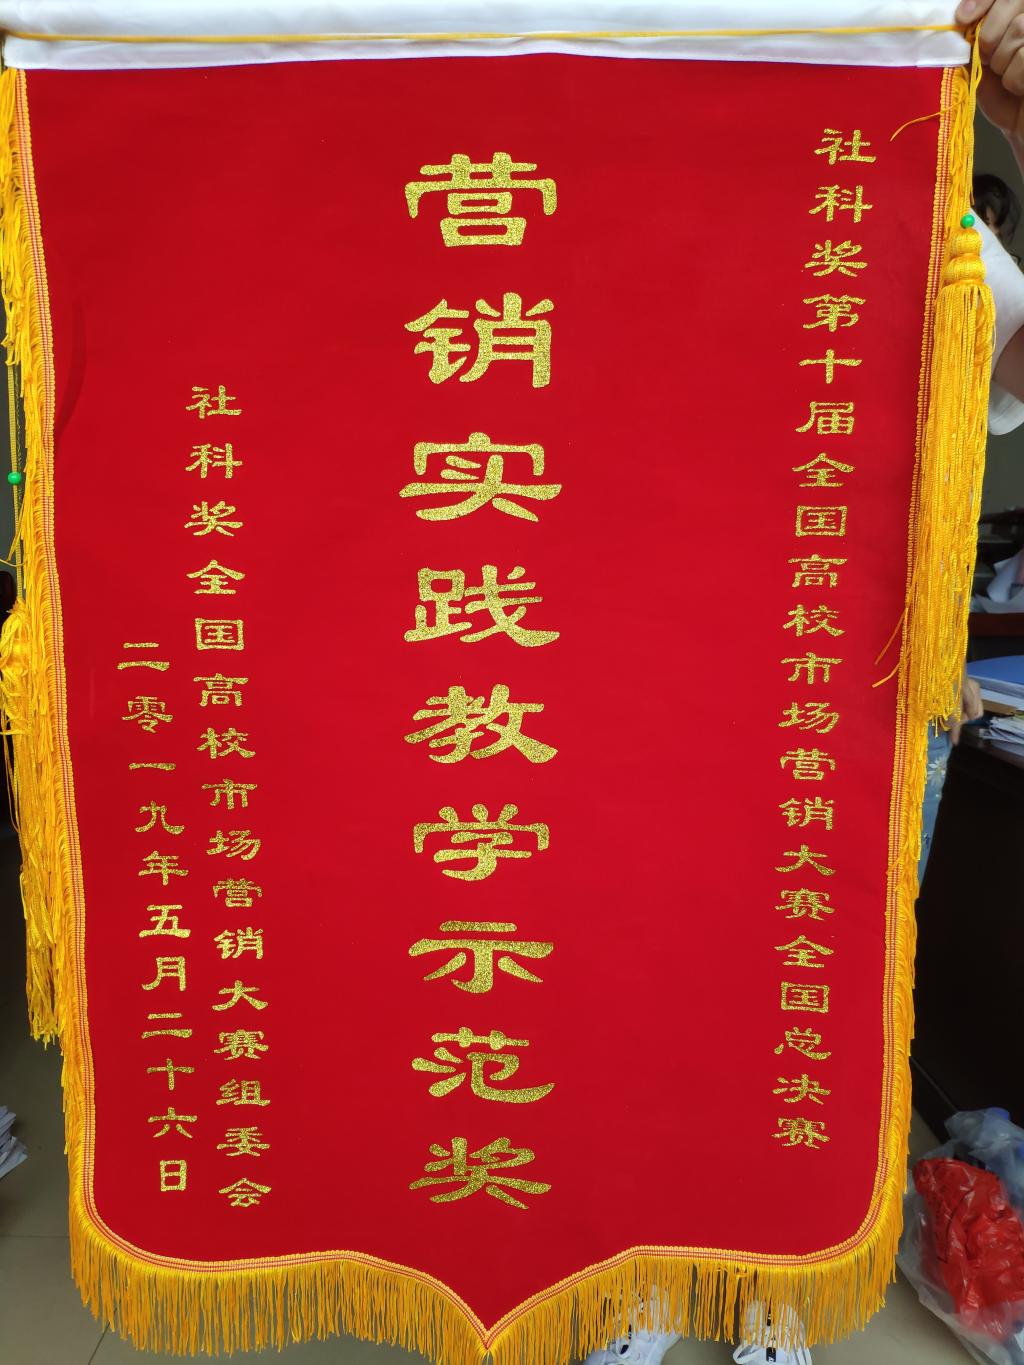 社科奖第十届全国高校市场营销大赛全国总决赛
营销实践教学示范奖
社科奖全国高校市场营销大赛组委会
二零一九年五月二十六日